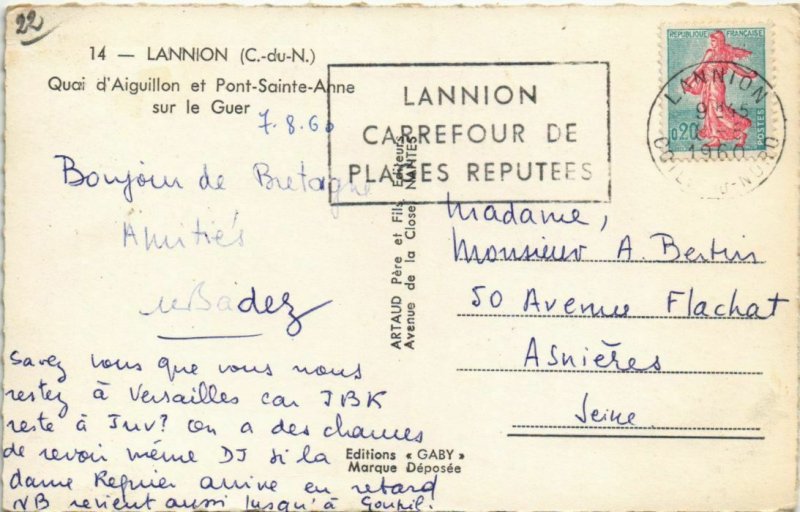 22
14 — LANNION (C.-du-N.)
Quai d'Aiguillon et Pont-Sainte-Anne
sur le Guer
7.8.60
Bonjour de Bretagne
Amitiés
Savez vous que vous nous
restez à Versailles car JBK
reste à Juv? on a des chances
de revoir même DJ si la
dame Regnier arrive en retard
NB revient aussi jusqu'à
LANNION
CARREFOUR DE
PLAGES REPUTEES
REPUBLIQUE FRANÇAISE
0,20
POSTES
LANNION
1960
ARTAUD Père et Fils, Editeurs
Avenue de la Close, NANTES
Madame,
Monsieur A. Bertin
50 Avenue Flachat
Asnières
Seine
Editions « GABY »
Marque Déposée